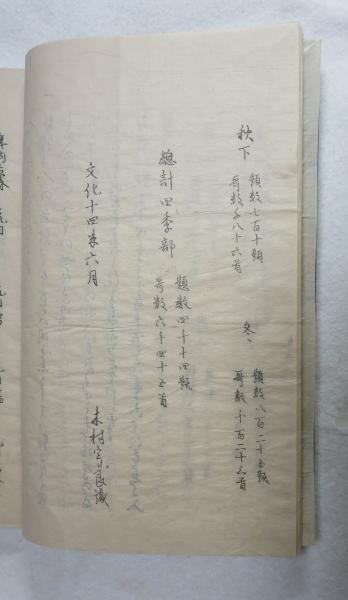 秋下
題数七百十題
哥数千八十六首
冬
題数八百二十五題
哥数千百二十三首
總計四季部
題数四千十四題
哥数六千四十五首
文化十四年六月
木村 良識